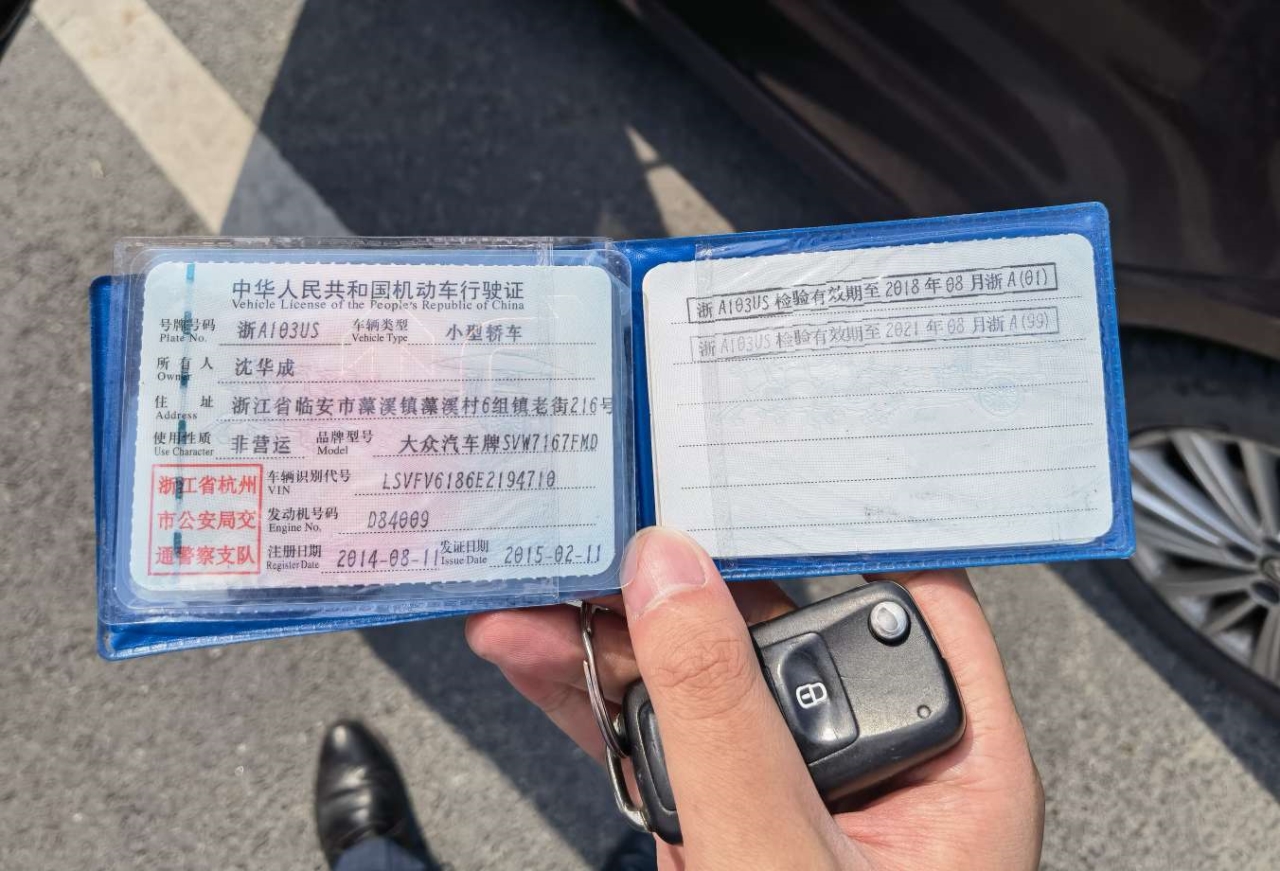 中华人民共和国机动车行驶证
Vehicle License of the People's Republic of China
号牌号码 浙A103US 车辆类型 小型轿车
Plate No. Vehicle Type
所有人 沈华成
Owner
住址 浙江省临安市藻溪镇藻溪村6组镇老街216号
Address
使用性质 非营运 品牌型号 大众汽车牌SVW7167FMD
Use Character Model
浙江省杭州
市公安局交
通警察支队
车辆识别代号 LSVFV6186E2194710
VIN
发动机号码 D84009
Engine No.
注册日期 2014-08-11 发证日期 2015-02-11
Register Date Issue Date
浙A103US检验有效期至2018年08月浙A(01)
浙A103US检验有效期至2021年08月浙A(99)